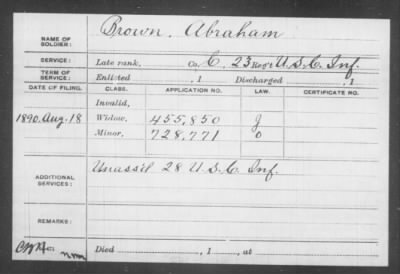 NAME OF SOLDIER: Brown, Abraham
SERVICE: Late rank, Co. C, 23 Reg't U.S.C. Inf.
TERM OF SERVICE: Enlisted , 1 Discharged , 1
DATE OF FILING. CLASS. APPLICATION NO. LAW. CERTIFICATE NO.
Invalid,
1890. Aug. 18 Widow, 455,850 J
Minor, 728,771 O
ADDITIONAL SERVICES: Unass'd 28 U.S.C. Inf.
REMARKS:
Died , 1 , at